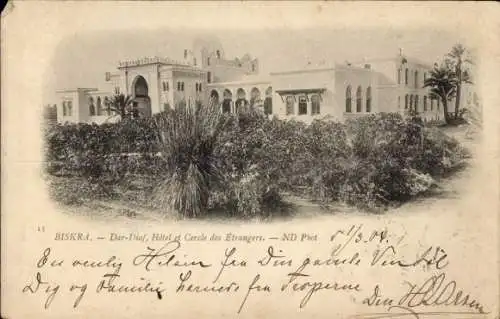 13 BISKRA. — Dar-Diaf, Hôtel et Cercle des Étrangers. — ND Phot
1/3. 04.
En venlig Hilsen fra Din gamle Vin
Dig og Familie fra Troperne
Din